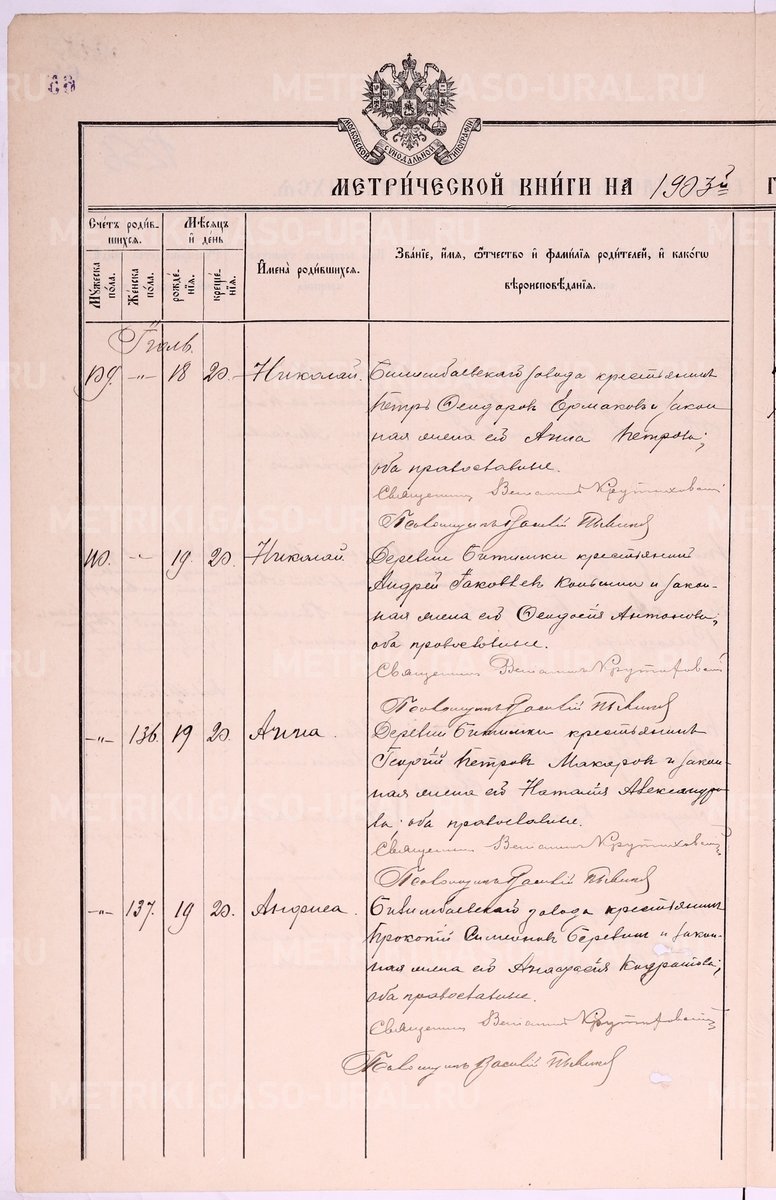 МОСКОВСКОЙ СѴНОДАЛЬНОЙ ТИПОГРАФІИ
МЕТРИ́ЧЕСКОЙ КНИ́ГИ НА 1903й Г
Сче́тъ роди́в-
шихся.
Мѣ́сяцъ
и҆ де́нь
И҆мена̀ роди́вшихся.
Зва́нїе, и҆́мя, ѻ҆́тчество и҆ фами́лїя роди́телей, и҆ како́гѡ
вѣроисповѣ́данїя.
Мꙋ́жеска по́ла.
Же́нска по́ла.
рожде́нїя.
креще́нїя.
Іюль.
-"- 18 20. Николай. Билимбаевскаго завода крестьянинъ
Петръ Ѳеодоровъ Ермаковъ и закон-
ная жена его Анна Петрова;
оба православные.
Священникъ Веніаминъ
Псаломщикъ Василій
-"- 19. 20. Николай. Деревни Битимки крестьянинъ
Андрей Іаковлевъ и закон-
ная жена его Ѳеодосія Антонова;
оба православные.
Священникъ Веніаминъ
Псаломщикъ Василій
-"- 136. 19 20. Анна. Деревни Битимки крестьянинъ
Георгій Петровъ Макаровъ и закон-
ная жена его Наталія Александро-
ва; оба православные.
Священникъ Веніаминъ
Псаломщикъ Василій
-"- 137. 19 20. Анфиса. Билимбаевскаго завода крестьянинъ
Прокопій Симеоновъ и закон-
ная жена его Анастасія Кондратова;
оба православные.
Священникъ Веніаминъ
Псаломщикъ Василій
METRIKI.GASO-URAL.RU